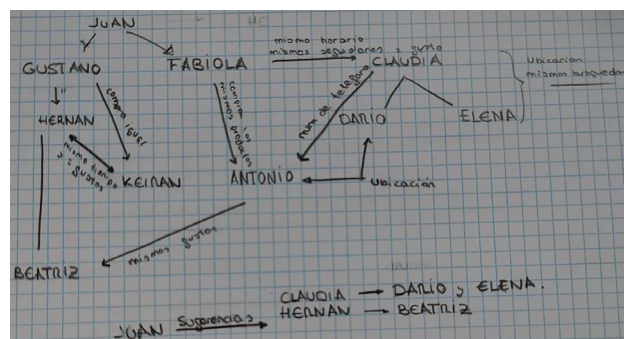 JUAN
GUSTANO
FABIOLA
mismo horario
mismos seguidores y gusto
CLAUDIA
Ubicación
mismas busquedas
HERNAN
compra igual
compran los
mismos productos
num de telefono
DARIO
ELENA
mismo tiempo
y gustos
KEINAN
ANTONIO
Ubicación
mismos gustos
BEATRIZ
CLAUDIA → DARIO y ELENA.
JUAN Sugerencias → HERNAN → BEATRIZ